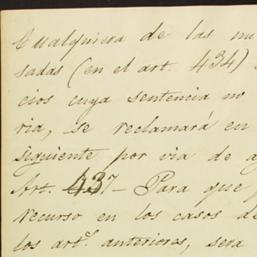 Cualquiera de las nu
sadas (en el art. 434)
cios cuya sentencia no
ria, se reclamará en
siguiente por via de a
Art. 437 - Para que
recurso en los casos de
los artˢ. anteriores, sera